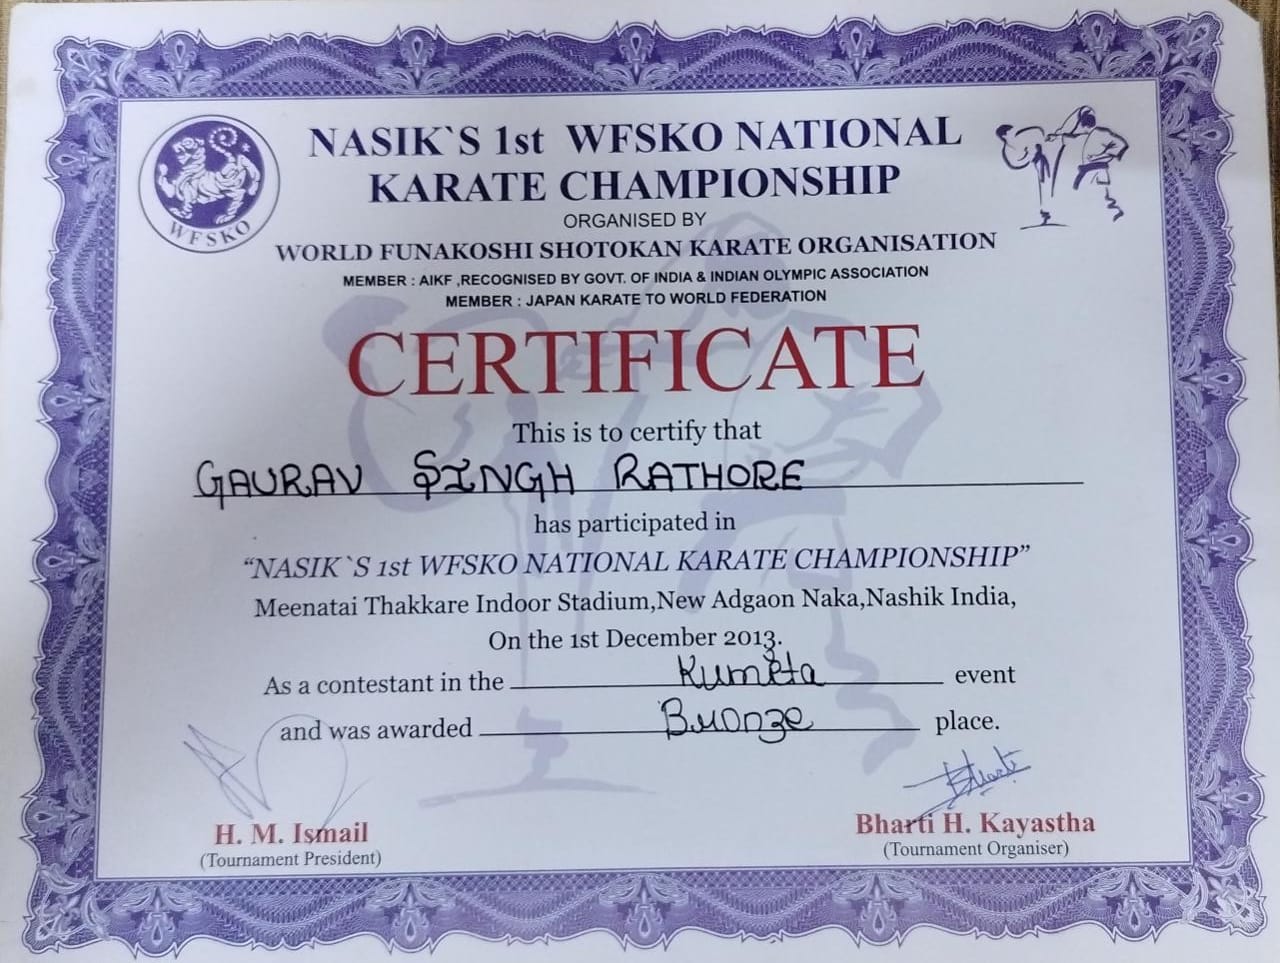 NASIK`S 1st WFSKO NATIONAL
KARATE CHAMPIONSHIP
WFSKO
ORGANISED BY
WORLD FUNAKOSHI SHOTOKAN KARATE ORGANISATION
MEMBER : AIKF ,RECOGNISED BY GOVT. OF INDIA & INDIAN OLYMPIC ASSOCIATION
MEMBER : JAPAN KARATE TO WORLD FEDERATION
CERTIFICATE
This is to certify that
GAURAV SINGH RATHORE
has participated in
“NASIK`S 1st WFSKO NATIONAL KARATE CHAMPIONSHIP”
Meenatai Thakkare Indoor Stadium,New Adgaon Naka,Nashik India,
On the 1st December 2013.
As a contestant in the Kumeta event
and was awarded Bronze place.
Bharti
H. M. Ismail
(Tournament President)
Bharti H. Kayastha
(Tournament Organiser)